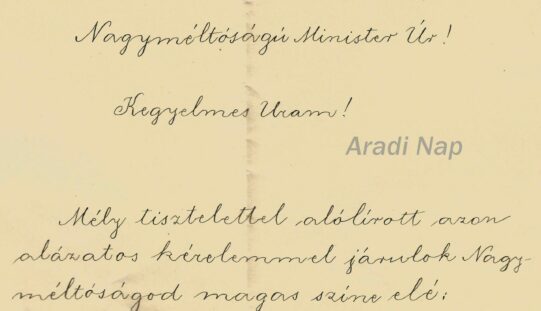 Nagyméltóságú Minister Úr!
Kegyelmes Uram!
Aradi Nap
Mély tisztelettel alólírott azon
alázatos kérelemmel járulok Nagy-
méltóságod magas színe elé: